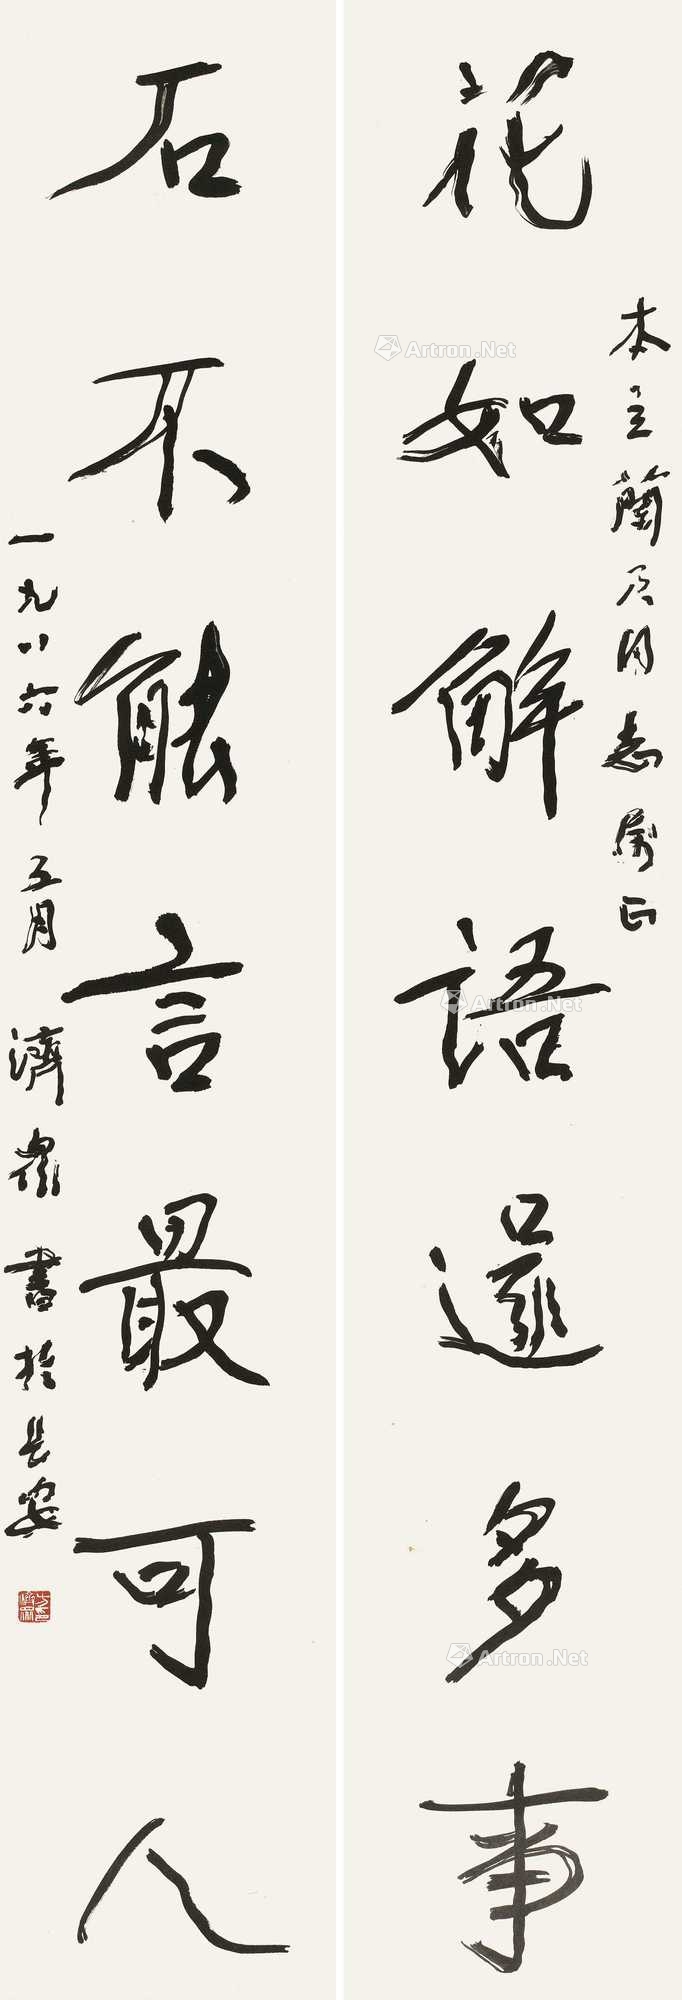 花如解語還多事
本立蘭君同志屬正
石不能言最可人
一九八六年五月濟眾書於長安
Artron.Net
Artron.Net
Artron.Net